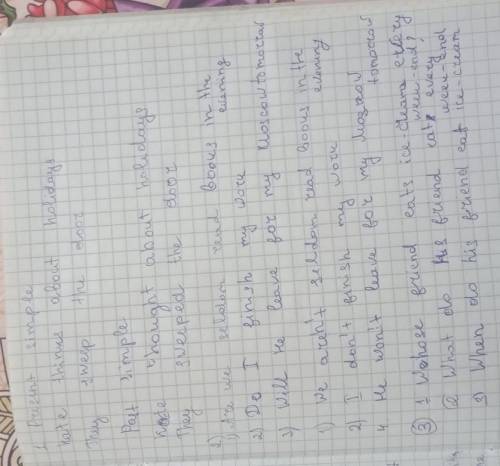 1. Present simple
Kate thinks about holidays
They sweep the door
Past simple
Kate thought about holidays
They sweeped the door
2)
1) Are we seldom read books in the evening
2) Do I finish my work
3) Will He leave for my Moscow tomorrow
1) We aren't seldom read books in the evening
2) I don't finish my work
4 He won't leave for my Moscow tomorrow
3 1 Whose friend eats ice-cream every week-end?
2 What do his friend eats every week-end
3) When do his friend eat ice-cream